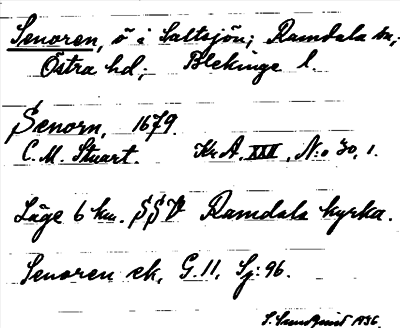 Senoren, ö i Saltsjön; Ramdala sn,
Östra hd, Blekinge l.
Senorn, 1679.
C. M. Stuart. Kr A. XXV, N:o 30, 1.
Läge 6 km. SSV Ramdala kyrka.
Senoren ek, G. 11, Sj: 96.
S. Lundquist 1936